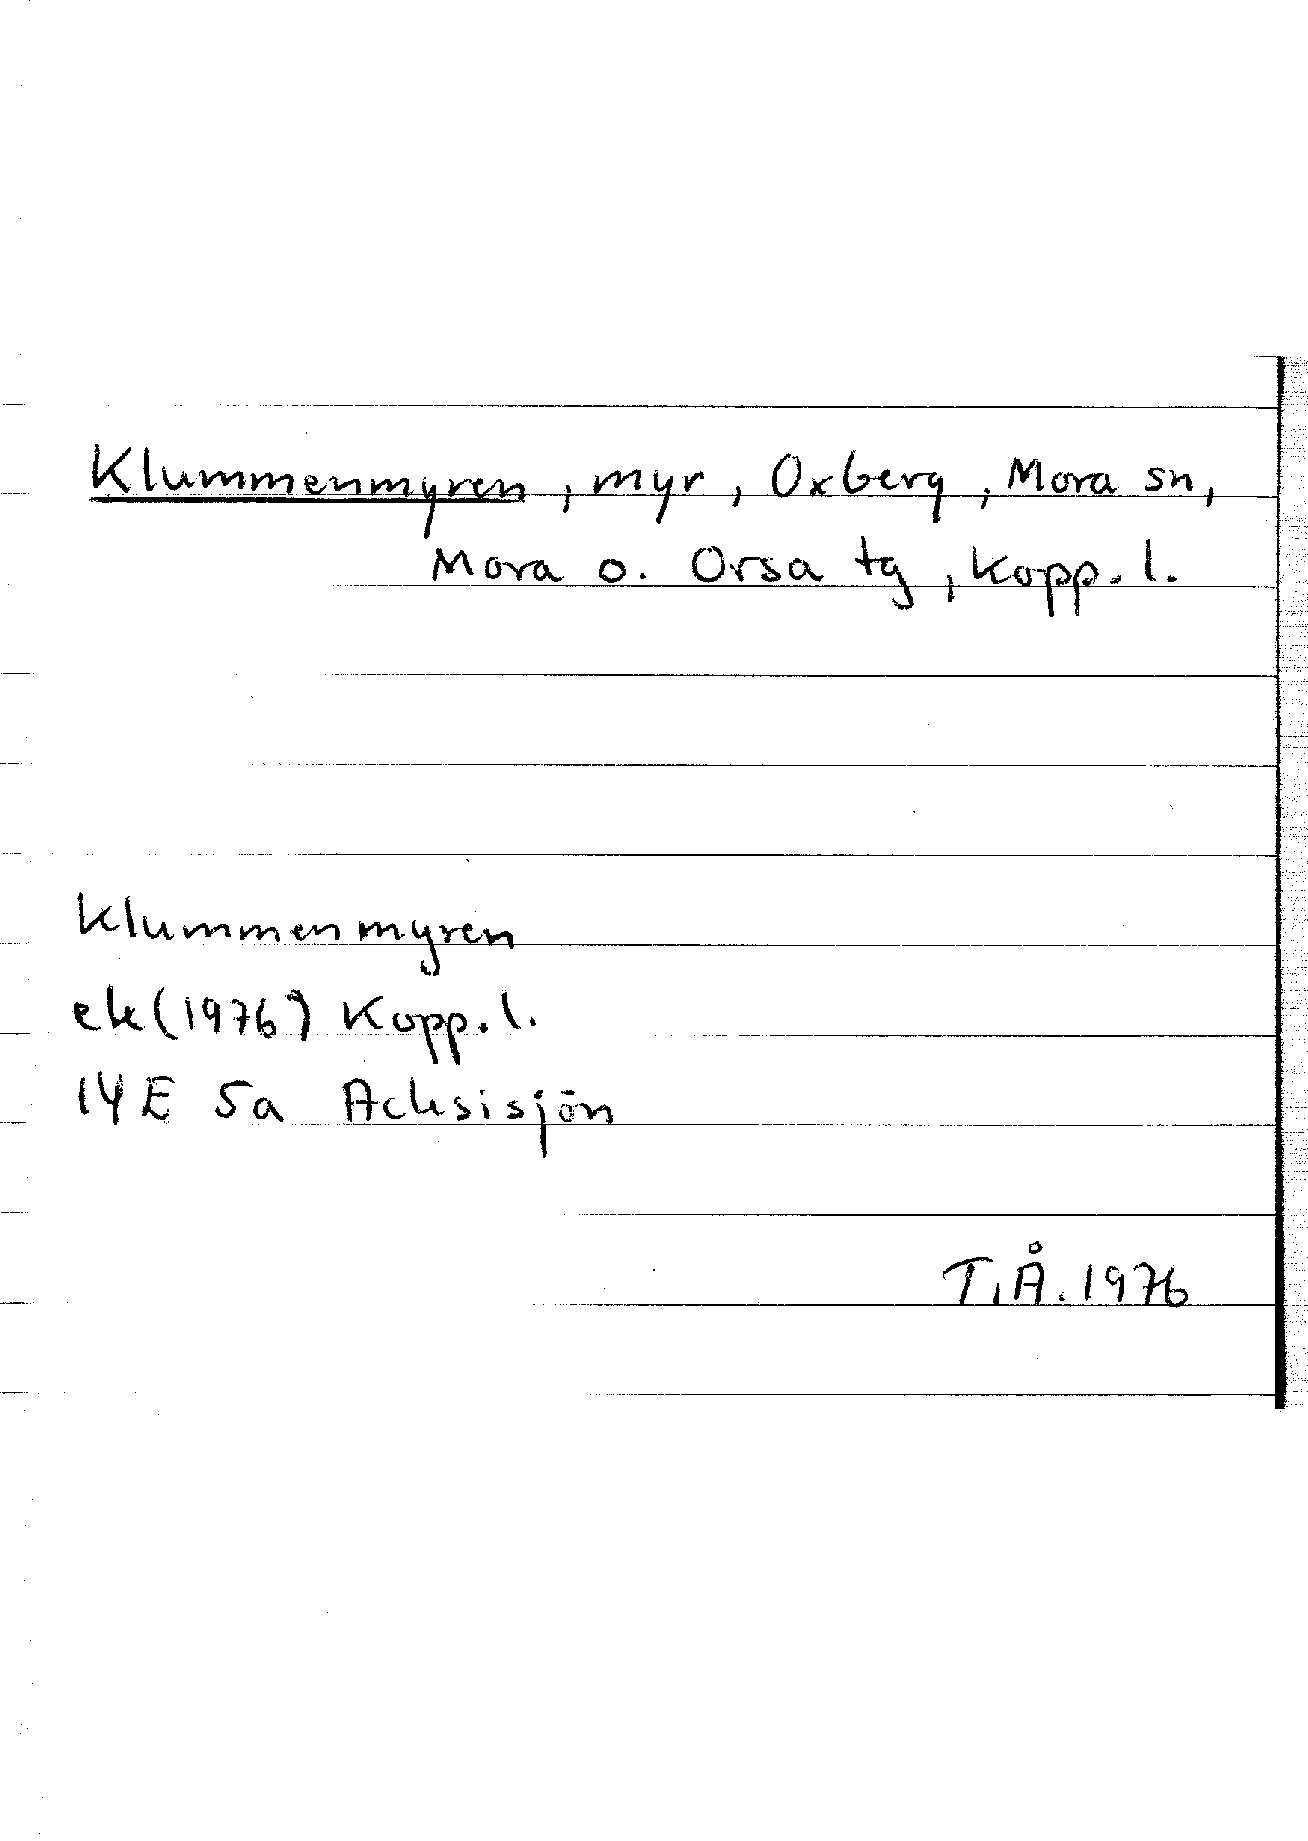 Klummenmyren, myr, Oxberg, Mora sn,
Mora o. Orsa tg, Kopp. l.
Klummenmyren
ek (1976) Kopp. l.
14E 5a Acksisjön
T.Å. 1976